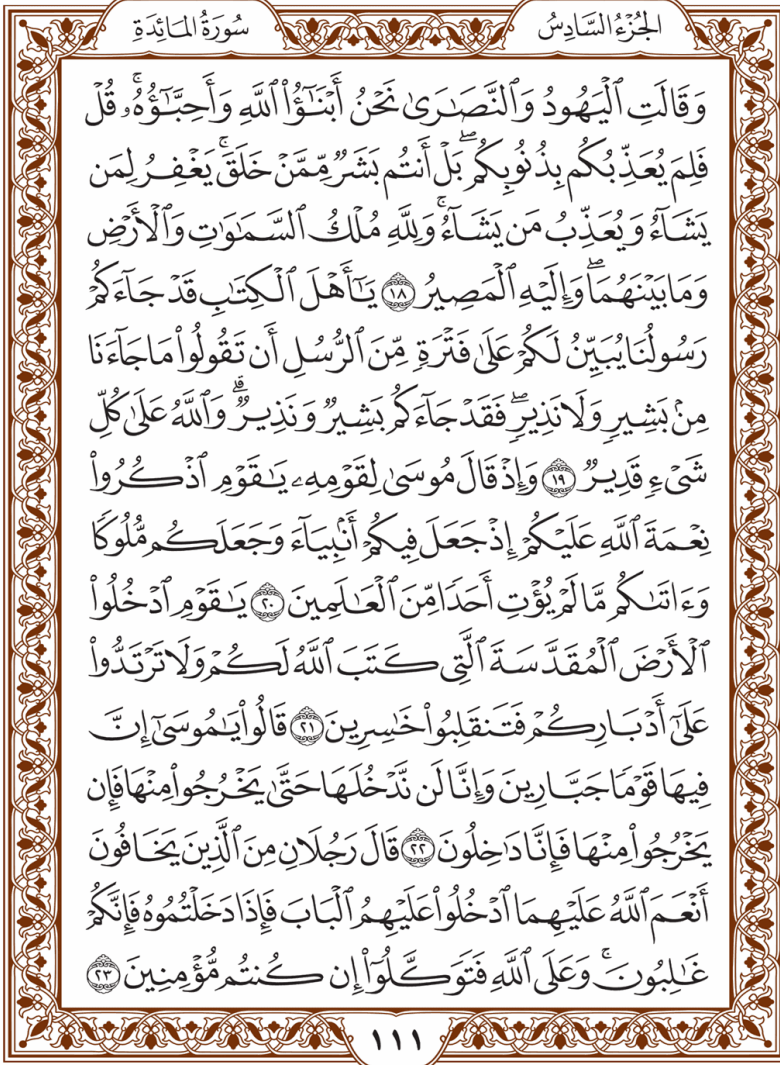 الجُزْءُ السَّادِسُ
سُورَةُ المَائِدَةِ
وَقَالَتِ ٱلْيَهُودُ وَٱلنَّصَٰرَىٰ نَحْنُ أَبْنَٰٓؤُا۟ ٱللَّهِ وَأَحِبَّٰٓؤُهُۥ ۚ قُلْ
فَلِمَ يُعَذِّبُكُم بِذُنُوبِكُم ۖ بَلْ أَنتُم بَشَرٌ مِّمَّنْ خَلَقَ ۚ يَغْفِرُ لِمَن
يَشَآءُ وَيُعَذِّبُ مَن يَشَآءُ ۚ وَلِلَّهِ مُلْكُ ٱلسَّمَٰوَٰتِ وَٱلْأَرْضِ
وَمَا بَيْنَهُمَا ۖ وَإِلَيْهِ ٱلْمَصِيرُ ١٨ يَٰٓأَهْلَ ٱلْكِتَٰبِ قَدْ جَآءَكُمْ
رَسُولُنَا يُبَيِّنُ لَكُمْ عَلَىٰ فَتْرَةٍ مِّنَ ٱلرُّسُلِ أَن تَقُولُوا۟ مَا جَآءَنَا
مِنۢ بَشِيرٍ وَلَا نَذِيرٍ ۖ فَقَدْ جَآءَكُم بَشِيرٌ وَنَذِيرٌ ۗ وَٱللَّهُ عَلَىٰ كُلِّ
شَىْءٍ قَدِيرٌ ١٩ وَإِذْ قَالَ مُوسَىٰ لِقَوْمِهِۦ يَٰقَوْمِ ٱذْكُرُوا۟
نِعْمَةَ ٱللَّهِ عَلَيْكُمْ إِذْ جَعَلَ فِيكُمْ أَنۢبِيَآءَ وَجَعَلَكُم مُّلُوكًا
وَءَاتَىٰكُم مَّا لَمْ يُؤْتِ أَحَدًا مِّنَ ٱلْعَٰلَمِينَ ٢٠ يَٰقَوْمِ ٱدْخُلُوا۟
ٱلْأَرْضَ ٱلْمُقَدَّسَةَ ٱلَّتِى كَتَبَ ٱللَّهُ لَكُمْ وَلَا تَرْتَدُّوا۟
عَلَىٰٓ أَدْبَارِكُمْ فَتَنقَلِبُوا۟ خَٰسِرِينَ ٢١ قَالُوا۟ يَٰمُوسَىٰٓ إِنَّ
فِيهَا قَوْمًا جَبَّارِينَ وَإِنَّا لَن نَّدْخُلَهَا حَتَّىٰ يَخْرُجُوا۟ مِنْهَا فَإِن
يَخْرُجُوا۟ مِنْهَا فَإِنَّا دَٰخِلُونَ ٢٢ قَالَ رَجُلَانِ مِنَ ٱلَّذِينَ يَخَافُونَ
أَنْعَمَ ٱللَّهُ عَلَيْهِمَا ٱدْخُلُوا۟ عَلَيْهِمُ ٱلْبَابَ فَإِذَا دَخَلْتُمُوهُ فَإِنَّكُمْ
غَٰلِبُونَ ۚ وَعَلَى ٱللَّهِ فَتَوَكَّلُوٓا۟ إِن كُنتُم مُّؤْمِنِينَ ٢٣
١١١